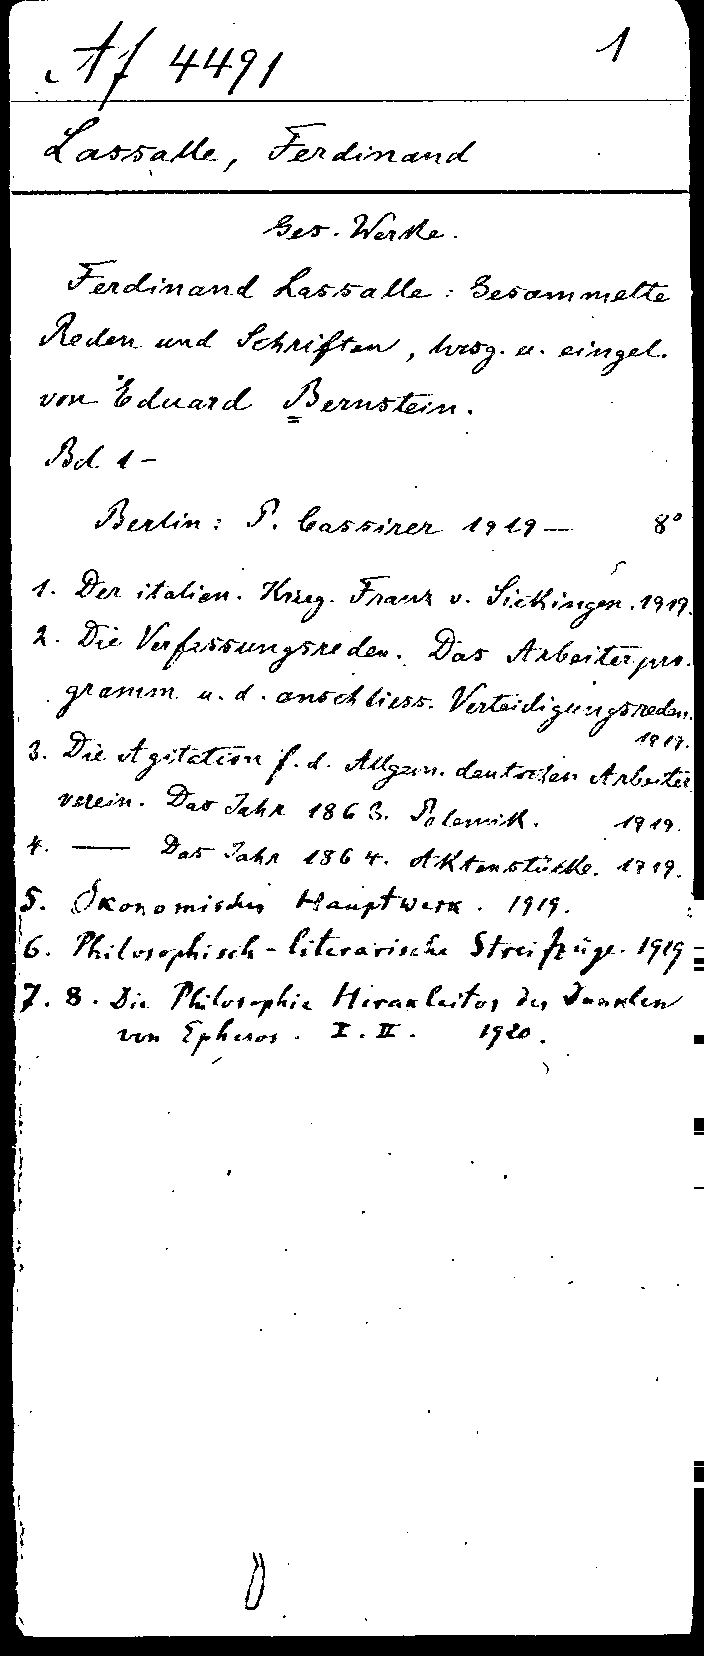 Af 4491 1
Lassalle, Ferdinand
Ges. Werke.
Ferdinand Lassalle: Gesammelte
Reden und Schriften, hrsg. u. eingel.
von Eduard Bernstein.
Bd. 1 –
Berlin: P. Cassirer 1919 — 8°
1. Der italien. Krieg. Franz v. Sickingen. 1919.
2. Die Verfassungsreden. Das Arbeiterpro-
gramm u. d. anschliess. Verteidigungsreden.
1919.
3. Die Agitation f. d. Allgem. deutschen Arbeiter
verein. Das Jahr 1863. Polemik. 1919.
4. —— Das Jahr 1864. Aktenstücke. 1919.
5. Ökonomisches Hauptwerk. 1919.
6. Philosophisch-literarische Streifzüge. 1919
7. 8. Die Philosophie Herakleitos des Dunklen
von Ephesos. I. II. 1920.